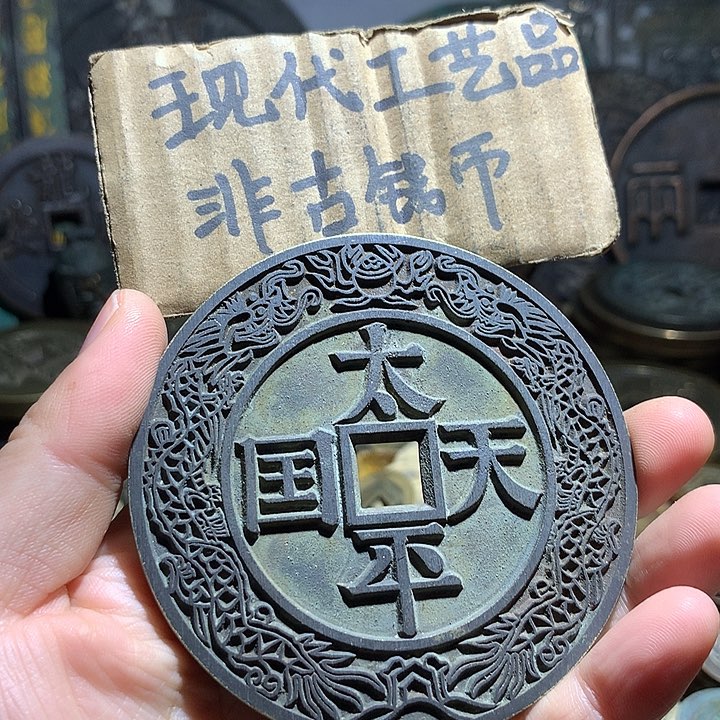 现代工艺品
非古钱币
太
国 天
平
雨